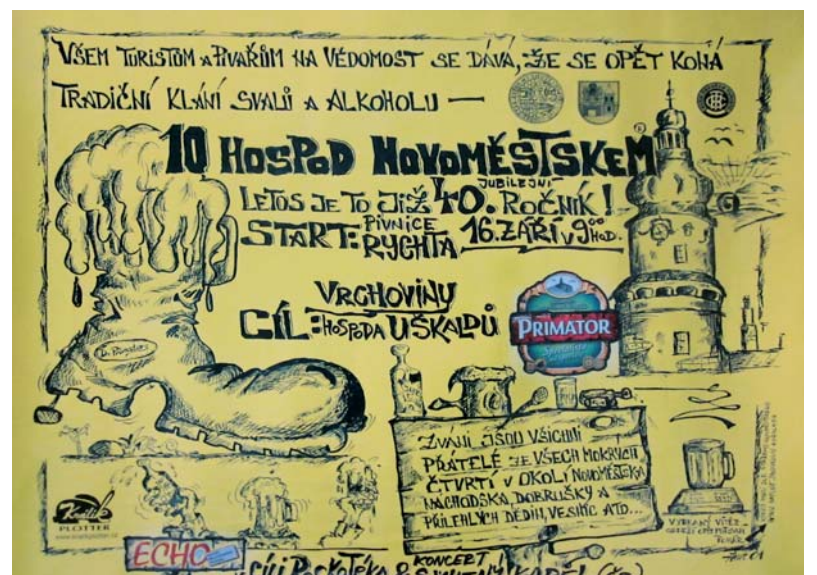 VŠEM TURISTŮM A PIVAŘŮM NA VĚDOMOST SE DÁVÁ, ŽE SE OPĚT KONÁ
TRADIČNÍ KLÁNÍ SVALŮ A ALKOHOLU —
10 HOSPOD NOVOMĚSTSKEM
LETOS JE TO JIŽ 40. JUBILEJNÍ ROČNÍK!
START: PIVNICE RYCHTA 16. ZÁŘÍ V 9⁰⁰ HOD.
VRCHOVINY
CÍL: HOSPODA U ŠKALDŮ
PRIMATOR
ZVÁNI JSOU VŠICHNI
PŘÁTELÉ ZE VŠECH MOKRÝCH
ČTVRTÍ V OKOLÍ NOVOMĚSTSKA
NÁCHODSKA, DOBRUŠKY A
PŘILEHLÝCH DĚDIN, VESNIC ATD...
PLOTTER
ECHO
KONCERT